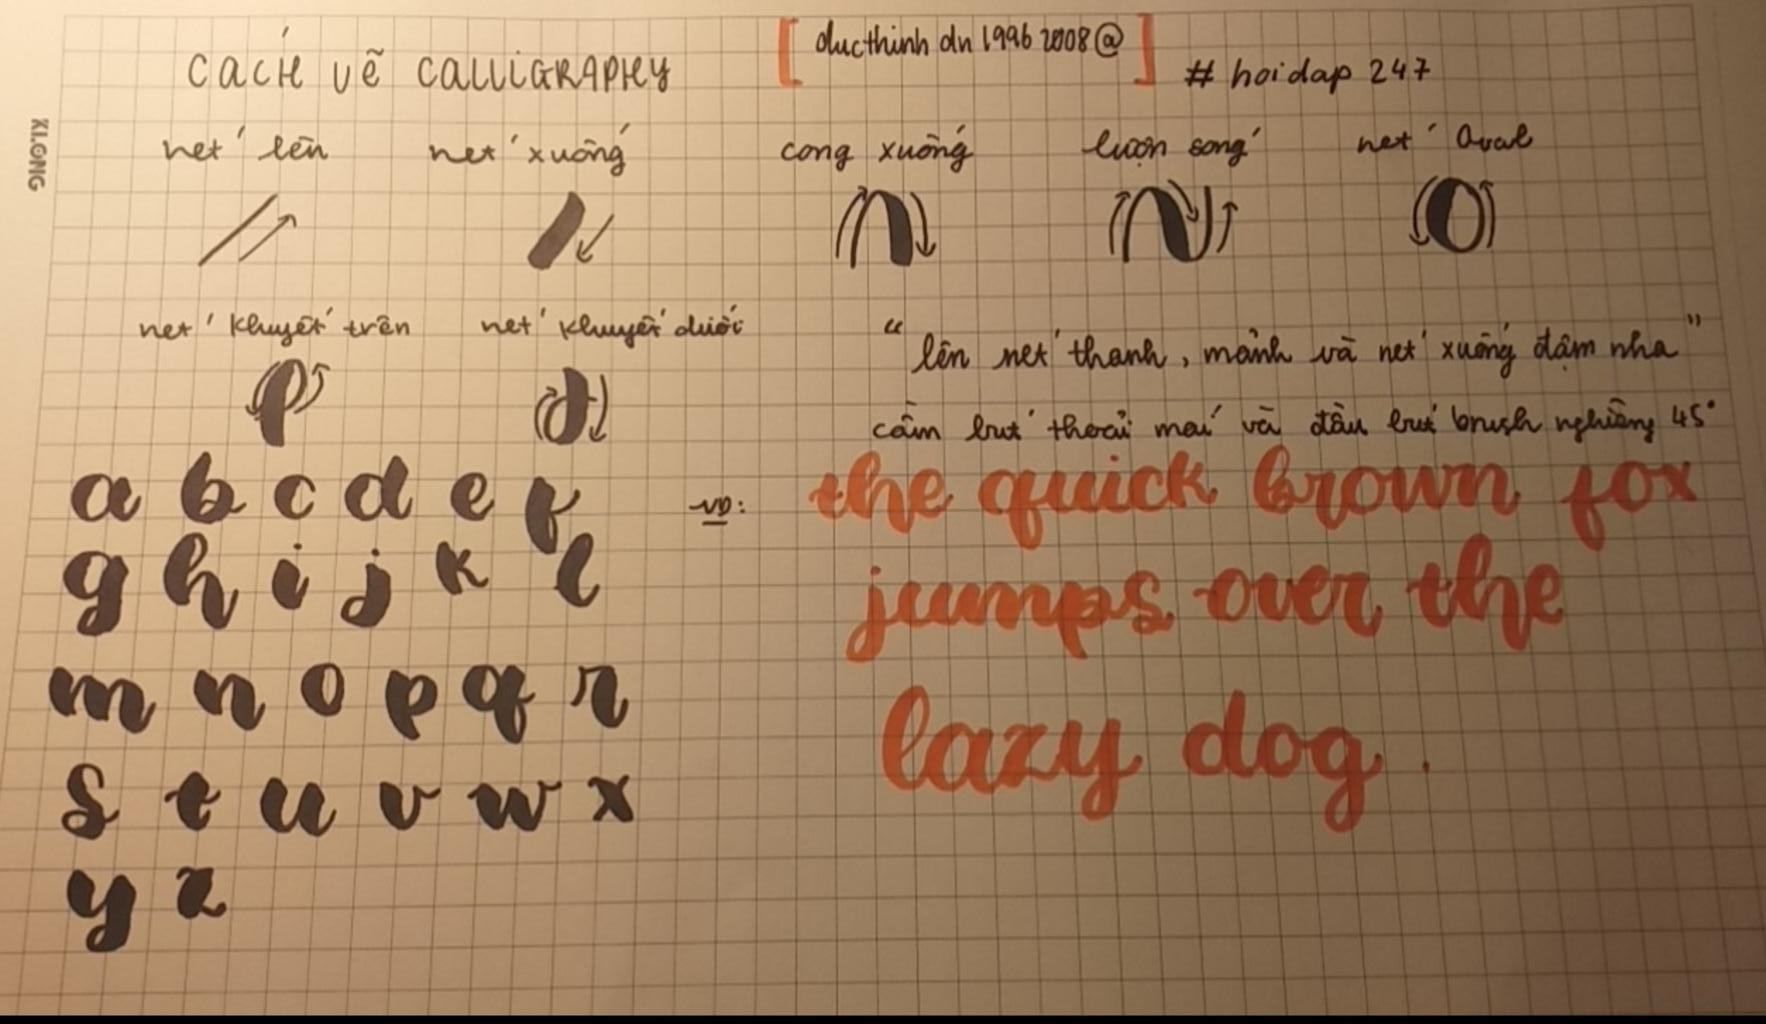 CÁCH VẼ CALLIGRAPHY
[ ducthinh dn 1996 2008@ ]
# hoidap 247
KLONG
nét lên nét xuống cong xuống lượn sóng nét Oval
nét khuyết trên nét khuyết dưới
“ lên nét thanh, mảnh và nét xuống đậm nha ”
cầm bút thoải mái và đầu bút brush nghiêng 45°
a b c d e f
g h i j k l
m n o p q r
s t u v w x
y z
VD:
the quick brown fox
jumps over the
lazy dog.